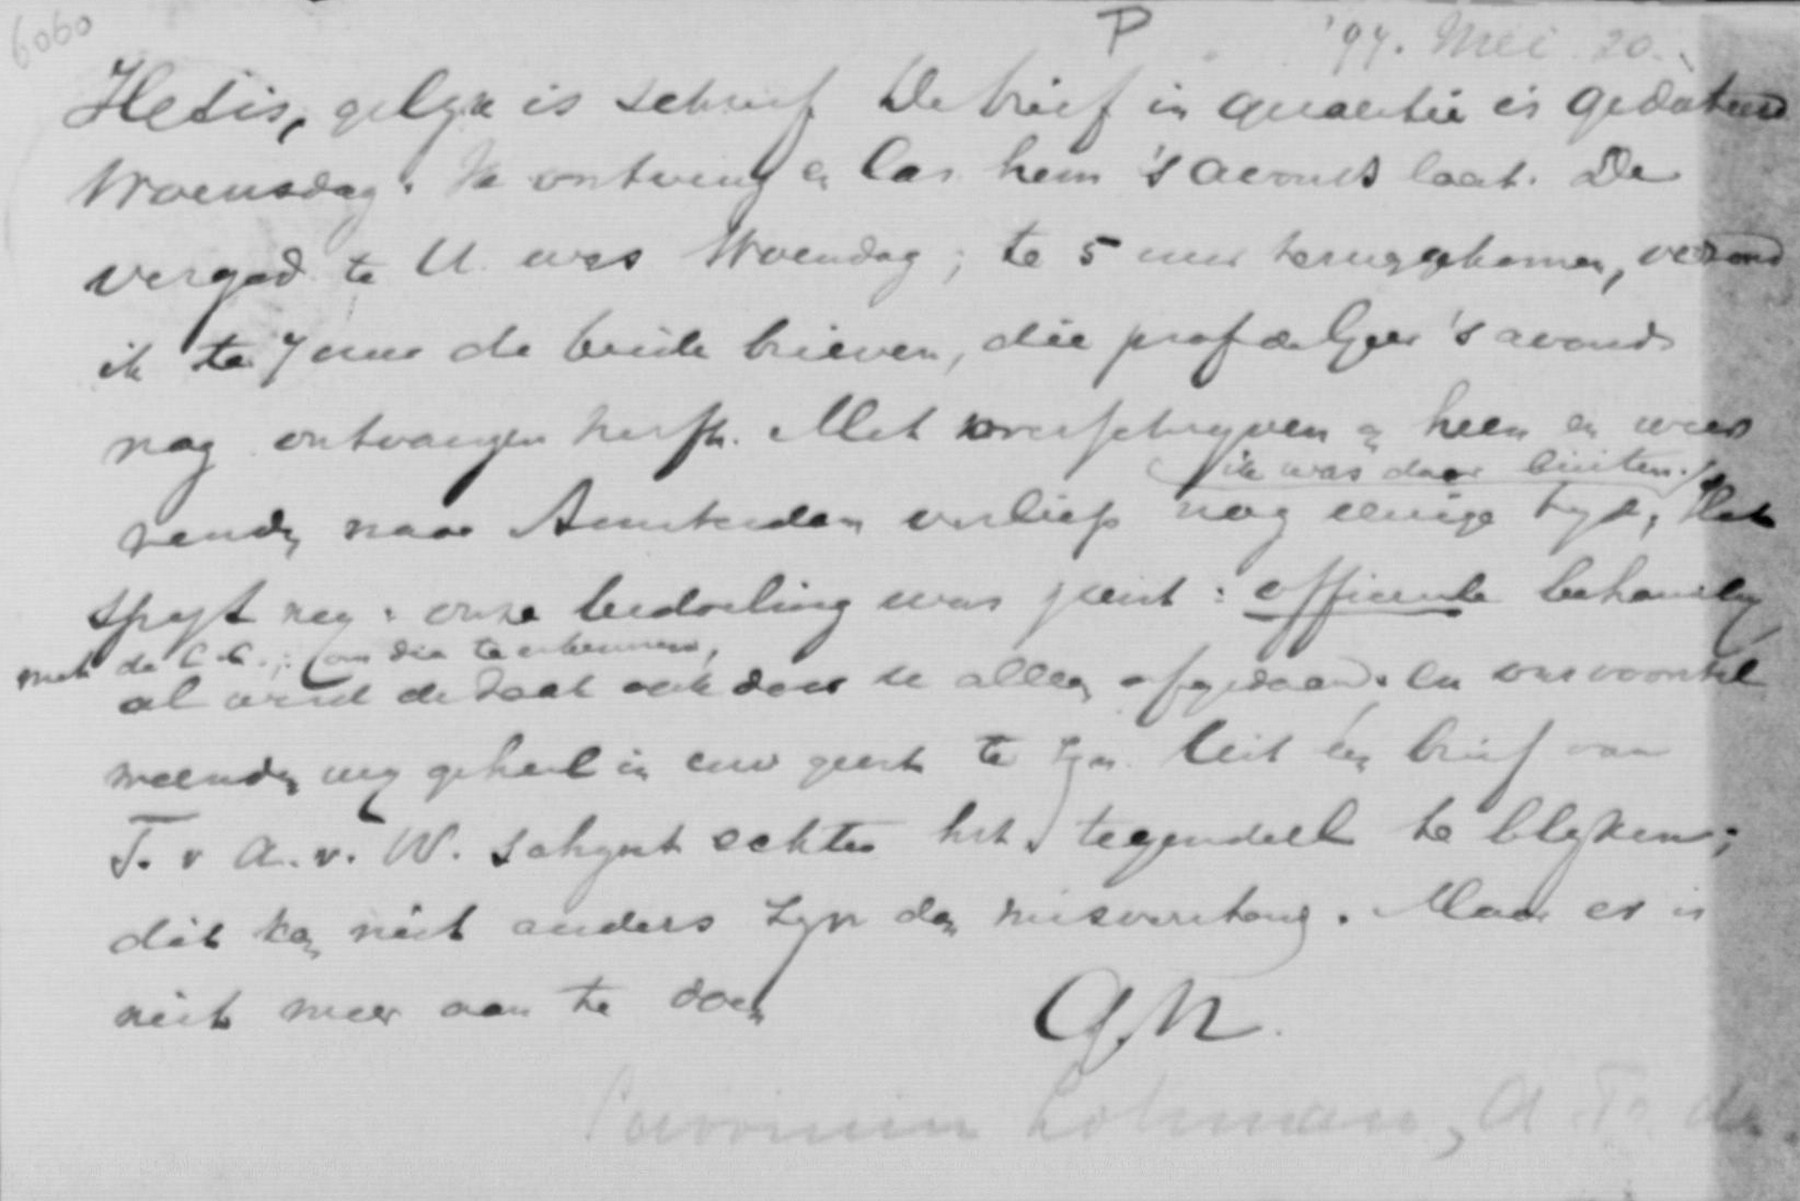 6060
P '94. Mei 20.
Het is, gelyk is schreef De brief in quaestie is gedateerd
Woensdag. Ik ontveng en las hem 's avonds laat. De
vergad. te U. was Woensdag; te 5 uur teruggekomen, verzond
ik te 7 uur de beide brieven, die prof de Geer 's avonds
nog ontvangen heeft. Met overschryven en heen en weer
(ik was daar buiten.)
zendn naar Amsterdam verliep nog eenige tyd, Het
spyt my: onze bedoeling was juist: officieele behandelg
met de C.C.; (om die te erkennen,
al werd de zaak ook door u alleen afgedaan. En ons voorstel
meendn wy geheel in uw geest te zyn. Uit én brief van
T. v A. v. W. schynt echter het tegendeel te blyken;
dit kan niet anders zyn dan misverstand. Maar er is
niet meer aan te doen
Savornin Lohman, A. F. de.